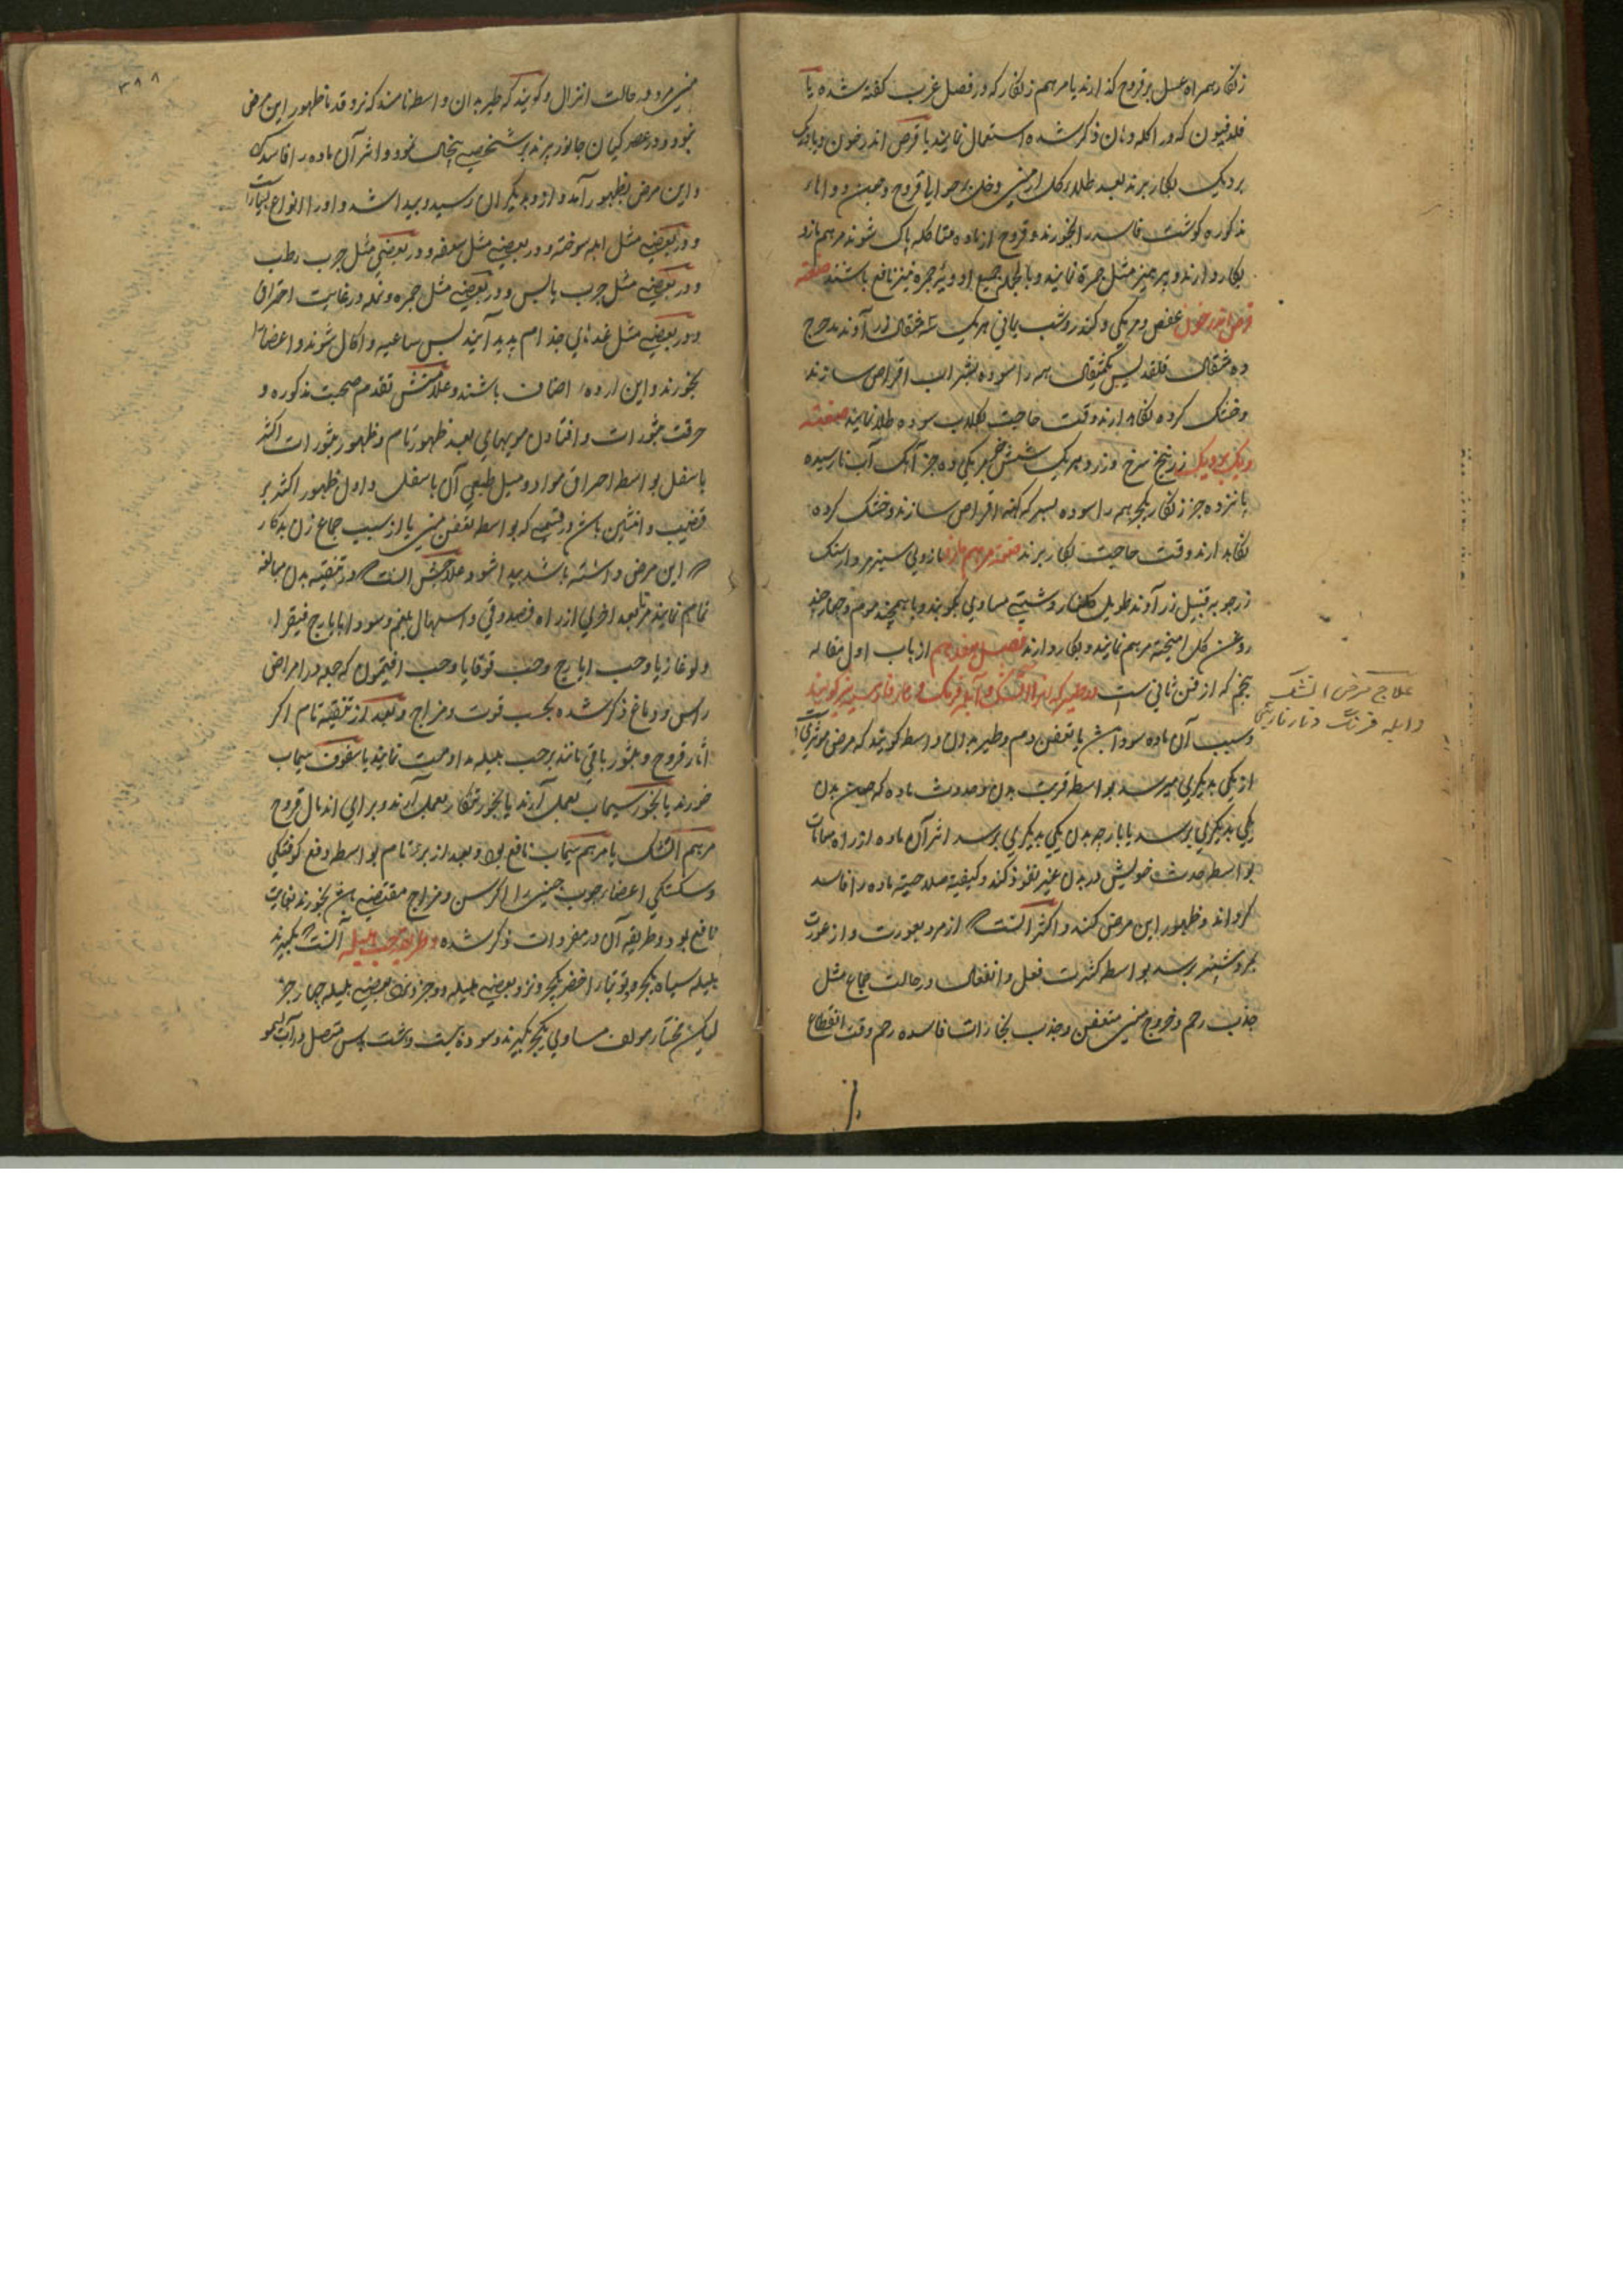 زنکار همراه عسل بر قروح کذارند یا مرهم زنکار که در فصل غرب کفته شده یا
فلدفیون که در اکله دهان ذکر شده استعمال نمایند یا قرص اندرخون و یا دیک
بر دیک بکار برند بعد طلا بر کل ارمنی و خل بر حوالی قروح و همین دواها
مذکوره کوشت فاسد را بخورند و قروح از ماده متاکله پاک شوند مرهم مازو
بکار دارند و پرهیز مثل جمره نمایند و بالجمله جمیع ادویه جمره نیز نافع باشند صفته
قرص اندرخون عفص و مر مکی و کندر و شب یمانی هریک سه مثقال زراوند مدحرج
ده مثقال قلقدیس یکمثقال همه را سوده بشراب اقراص سازند
و خشک کرده نکاهدارند وقت حاجت بکلاب سوده طلا نمایند صفته
دیک بر دیک زرنیخ سرخ و زرد هریک شش جزء مر مکی ده جزء آهک آب نارسیده
پانزده جزء زنکار یکجزء همه را سوده بسرکه کهنه اقراص سازند و خشک کرده
نکاهدارند وقت حاجت بکار برند صفت مرهم مازو مازوی سبز مردارسنک
زرچوبه قنبیل زراوند طویل کلنار و شیتی مساوی بکوبند و با همچند موم و چهارچند
روغن کل امیخته مرهم نمایند و بکار دارند فصل هفدهم از باب اول مقاله
پنجم که از فن ثانی است در طیر که انرا اتشک و آبله فرنک و نار فارسی نیز کویند
و سبب آن ماده سوداست یا تعفن دم و طیر بدان واسطه کویند که مرض موثریست
از یکی بدیکری میرسد بواسطه قربت بدن و حدوث ماده که چون بدن
یکی بدیکری برسد یا پارچه بدن یکی بدیکری برسد اثر آن ماده از راه مسامات
بواسطه حدت خویش در بدن غیر نفوذ کند و کیفیته صلاحیته ماده را فاسد
کرداند و ظهور این مرض کند و اکثر آنست که از مرد بعورت و از عورت
بمرد بیشتر برسد بواسطه کثرت فعل و انفعال در حالت جماع مثل
جذب رحم و خروج منی متعفن و جذب بخارات فاسده رحم وقت انقطاع
علاج مرض اتشک
و ابله فرنک و نار فارسی
۳۸۸
منی مرد در حالت انزال و کویند که طیر بدان واسطه نامند که نزد قدما ظهور این مرض
نبود و در عصر کیان جانور پرنده بر شخصی پنجال نمود و اثر آن ماده را فاسد کرد
و این مرض بظهور آمد و از و بدیکران رسید و پیدا شد و او را انواع بسیار است
و در بعضی مثل ابله سوخته و در بعضی مثل سعفه و در بعضی مثل جرب رطب
و در بعضی مثل جرب یابس و در بعضی مثل جمره و نمله در غایت احتراق
و در بعضی مثل غددهای جذام پدید آیند پس ساعیه و اکال شوند و اعضا را
بخورند و این اردء اصناف باشند و علامتش تقدم صحبت مذکوره و
حرقت بثورات و افتادن مویهای بعد ظهور تام و ظهور بثورات اکثر
باسفل بواسطه احراق مواد و میل طبعی آن باسفل و اول ظهور اکثر بر
قضیب و انثیین باشد در قسمی که بواسطه تعفن منی یا از سبب جماع زن بدکار
که این مرض داشته باشد پیدا شود علاجش آنست که در تنقیه بدن مبالغه
تمام نمایند مرة بعد اخری از راه فصد و قی و اسهال بلغم و سودا بایارج فیقرا
و لوغاذیا و حب ایارج و حب قوقایا و حب افتیمون که جمله در امراض
راس و دماغ ذکر شده بحسب قوت و مزاج و بعد از تنقیه تام اکر
آثار قروح و بثور باقی ماند بر حب هلیله مداومت نمایند یا سفوف سیماب
خورند یا بخور سیماب بعمل آرند یا بخور شنکار بعمل آرند و برای اندمال قروح
مرهم اتشک یا مرهم سیماب نافع بود و بعد از برء تام بواسطه دفع کوفتکی
و سستکی اعضا چوب چینی را اکر سن و مزاج مقتضی باشد بخورند بغایت
نافع بود و طریقه آن در مفردات ذکر شده و طریقه حب هلیله آنست که بکیرند
هلیله سیاه یکجزء و توتیاء اخضر یکجزء و نزد بعضی هلیله دو جزء و نزد بعضی هلیله چهار جزء
لیکن مختار مولف مساوی یکجزء کیرند و سوده بیست و هشت پاس متصل در آب لیمو